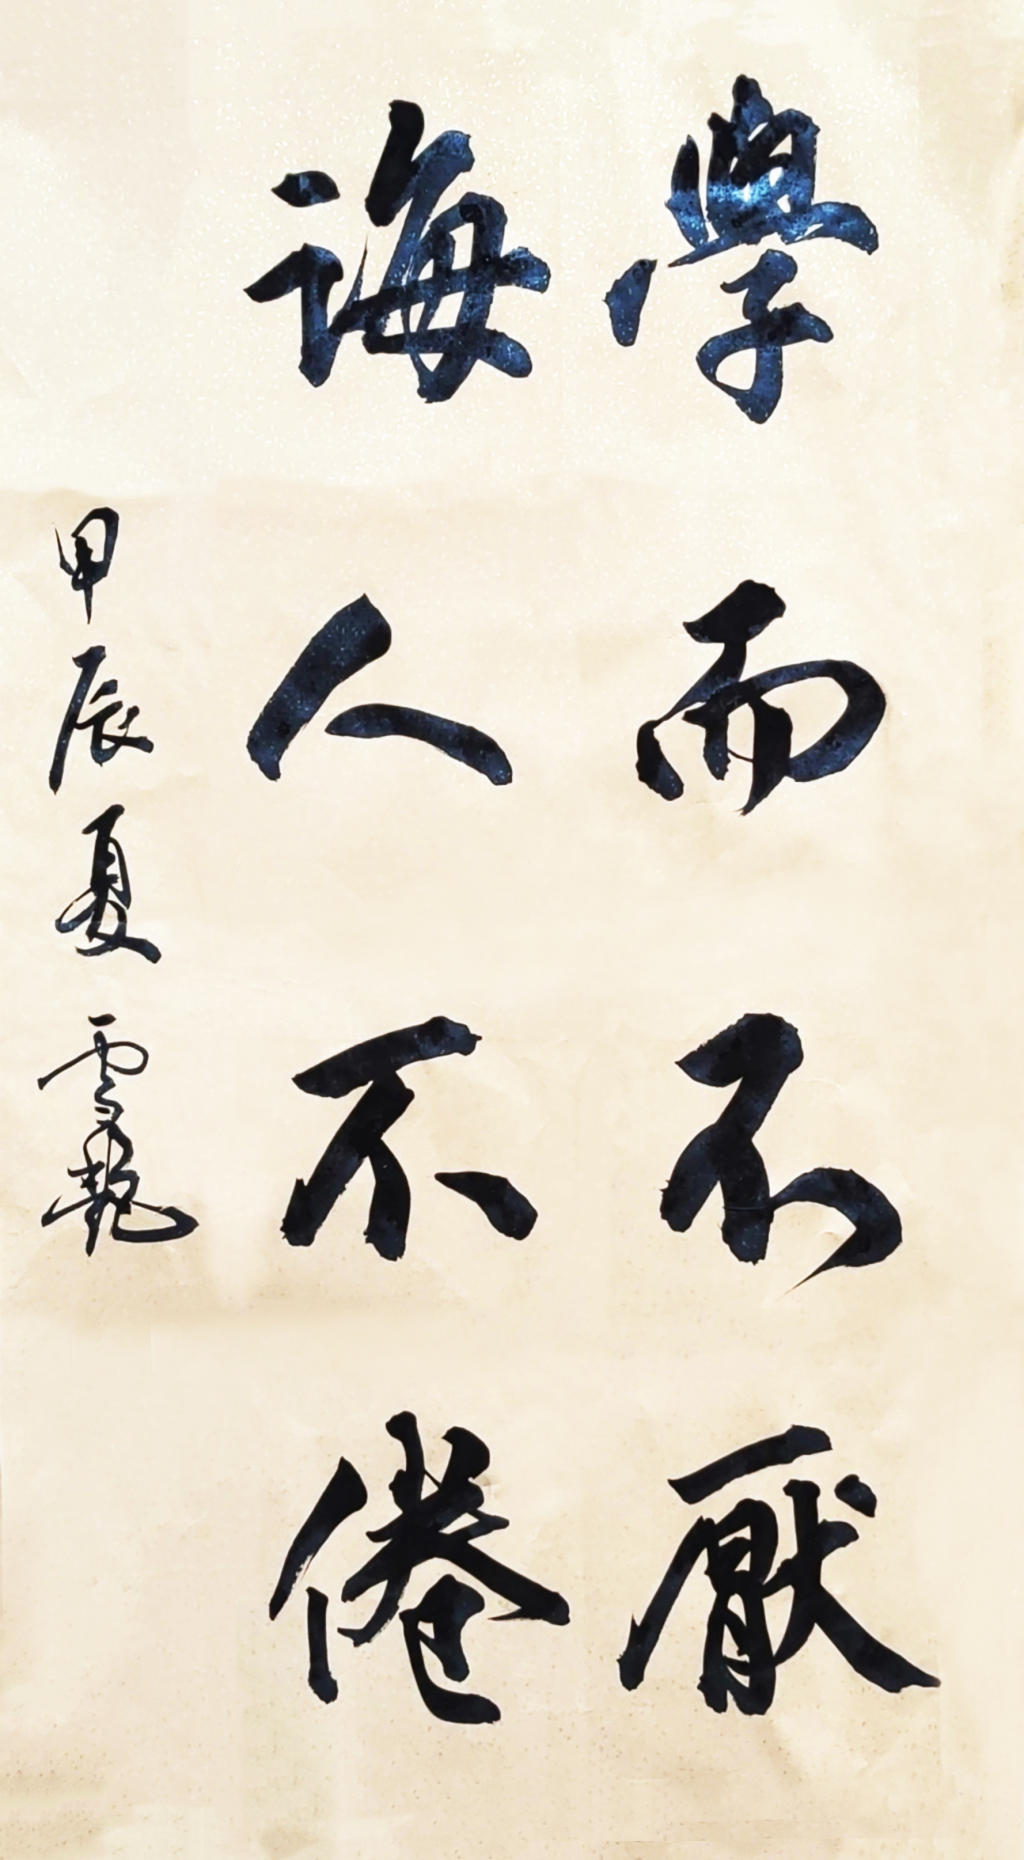 學而不厭
誨人不倦
甲辰夏雪艷